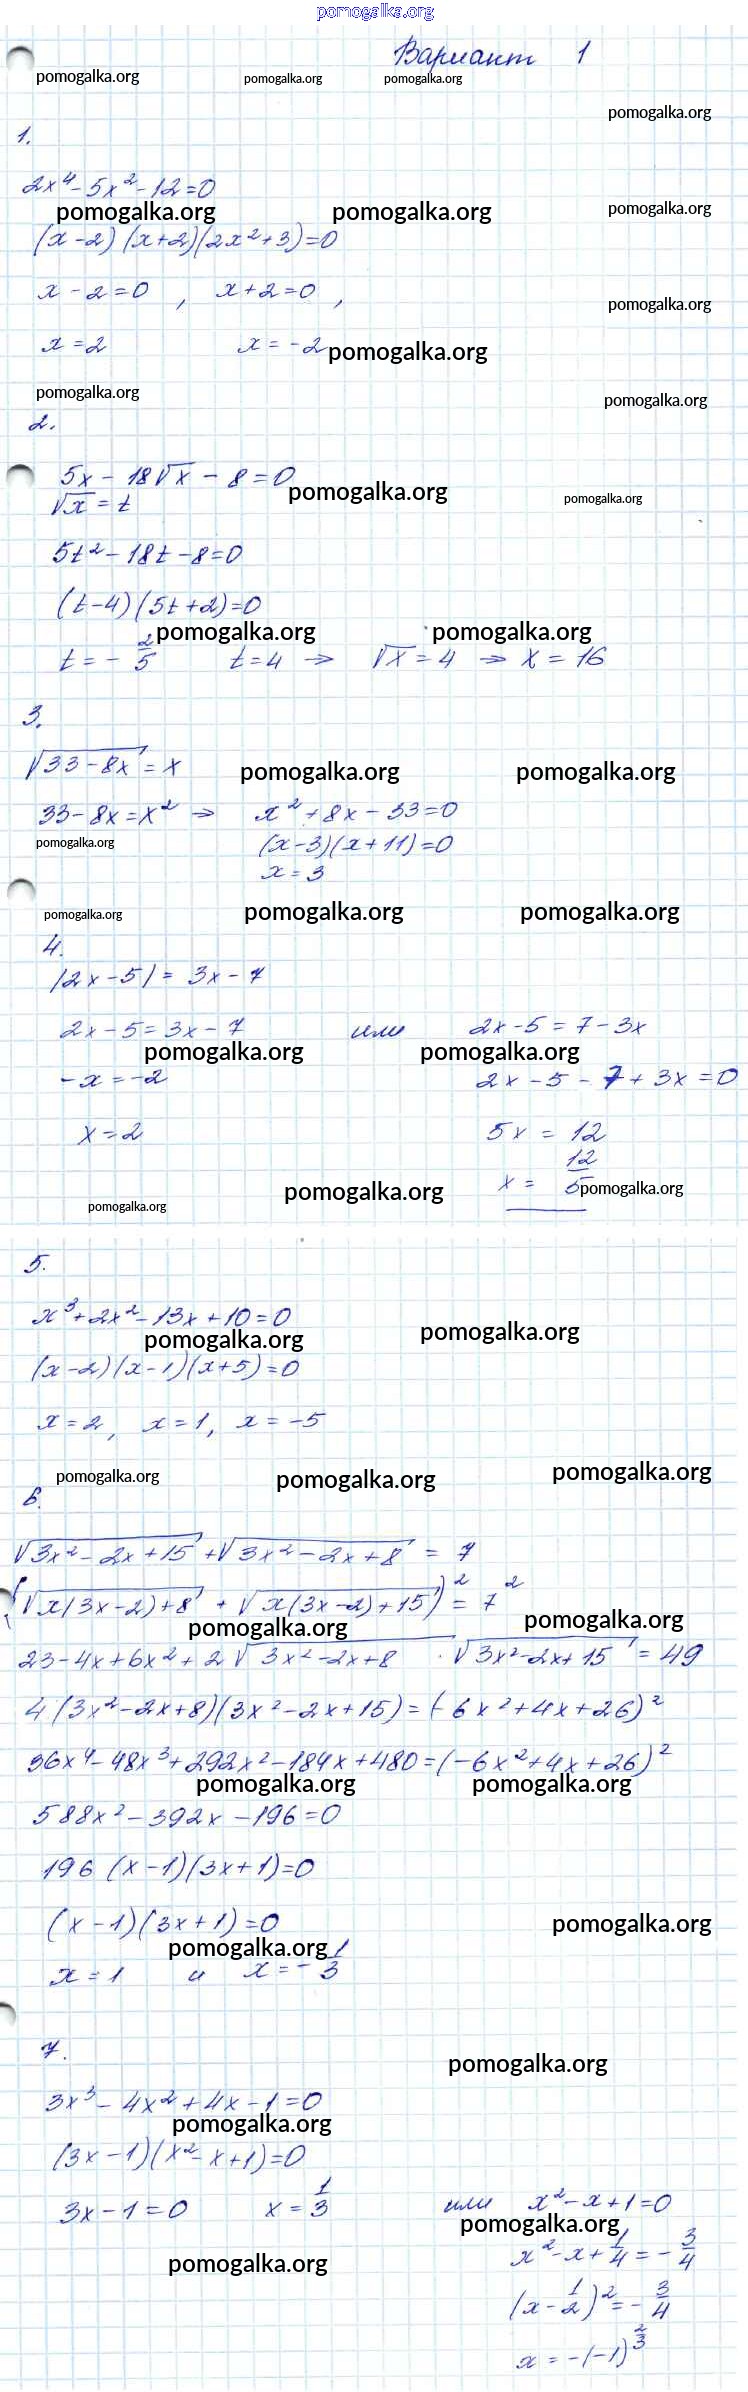 pomogalka.org
Вариант 1
pomogalka.org pomogalka.org pomogalka.org
pomogalka.org
1.
2x⁴ - 5x² - 12 = 0
pomogalka.org pomogalka.org pomogalka.org
(x - 2)(x + 2)(2x² + 3) = 0
x - 2 = 0 , x + 2 = 0 ,
pomogalka.org
x = 2 x = -2
pomogalka.org
pomogalka.org pomogalka.org
2.
5x - 18√x - 8 = 0
pomogalka.org pomogalka.org
√x = t
5t² - 18t - 8 = 0
(t - 4)(5t + 2) = 0
pomogalka.org pomogalka.org
t = - 2/5 t = 4 ⇒ √x = 4 ⇒ x = 16
3.
√(33 - 8x) = x
pomogalka.org pomogalka.org
33 - 8x = x² ⇒ x² + 8x - 33 = 0
pomogalka.org
(x - 3)(x + 11) = 0
x = 3
pomogalka.org pomogalka.org pomogalka.org
4.
|2x - 5| = 3x - 7
2x - 5 = 3x - 7 или 2x - 5 = 7 - 3x
pomogalka.org pomogalka.org
-x = -2 2x - 5 - 7 + 3x = 0
x = 2 5x = 12
x = 12/5
pomogalka.org pomogalka.org
pomogalka.org
5.
x³ + 2x² - 13x + 10 = 0
pomogalka.org pomogalka.org
(x - 2)(x - 1)(x + 5) = 0
x = 2, x = 1, x = -5
pomogalka.org pomogalka.org pomogalka.org
6.
√(3x² - 2x + 15) + √(3x² - 2x + 8) = 7
(√(x(3x - 2) + 8) + √(x(3x - 2) + 15))² = 7²
pomogalka.org pomogalka.org
23 - 4x + 6x² + 2√(3x² - 2x + 8) · √(3x² - 2x + 15) = 49
4(3x² - 2x + 8)(3x² - 2x + 15) = (-6x² + 4x + 26)²
36x⁴ - 48x³ + 292x² - 184x + 480 = (-6x² + 4x + 26)²
pomogalka.org pomogalka.org
588x² - 392x - 196 = 0
196 (x - 1)(3x + 1) = 0
(x - 1)(3x + 1) = 0
pomogalka.org
pomogalka.org
x = 1 и x = - 1/3
7.
pomogalka.org
3x³ - 4x² + 4x - 1 = 0
pomogalka.org
(3x - 1)(x² - x + 1) = 0
3x - 1 = 0 x = 1/3 или x² - x + 1 = 0
pomogalka.org
x² - x + 1/4 = - 3/4
pomogalka.org
(x - 1/2)² = - 3/4
x = -(-1)^(2/3)